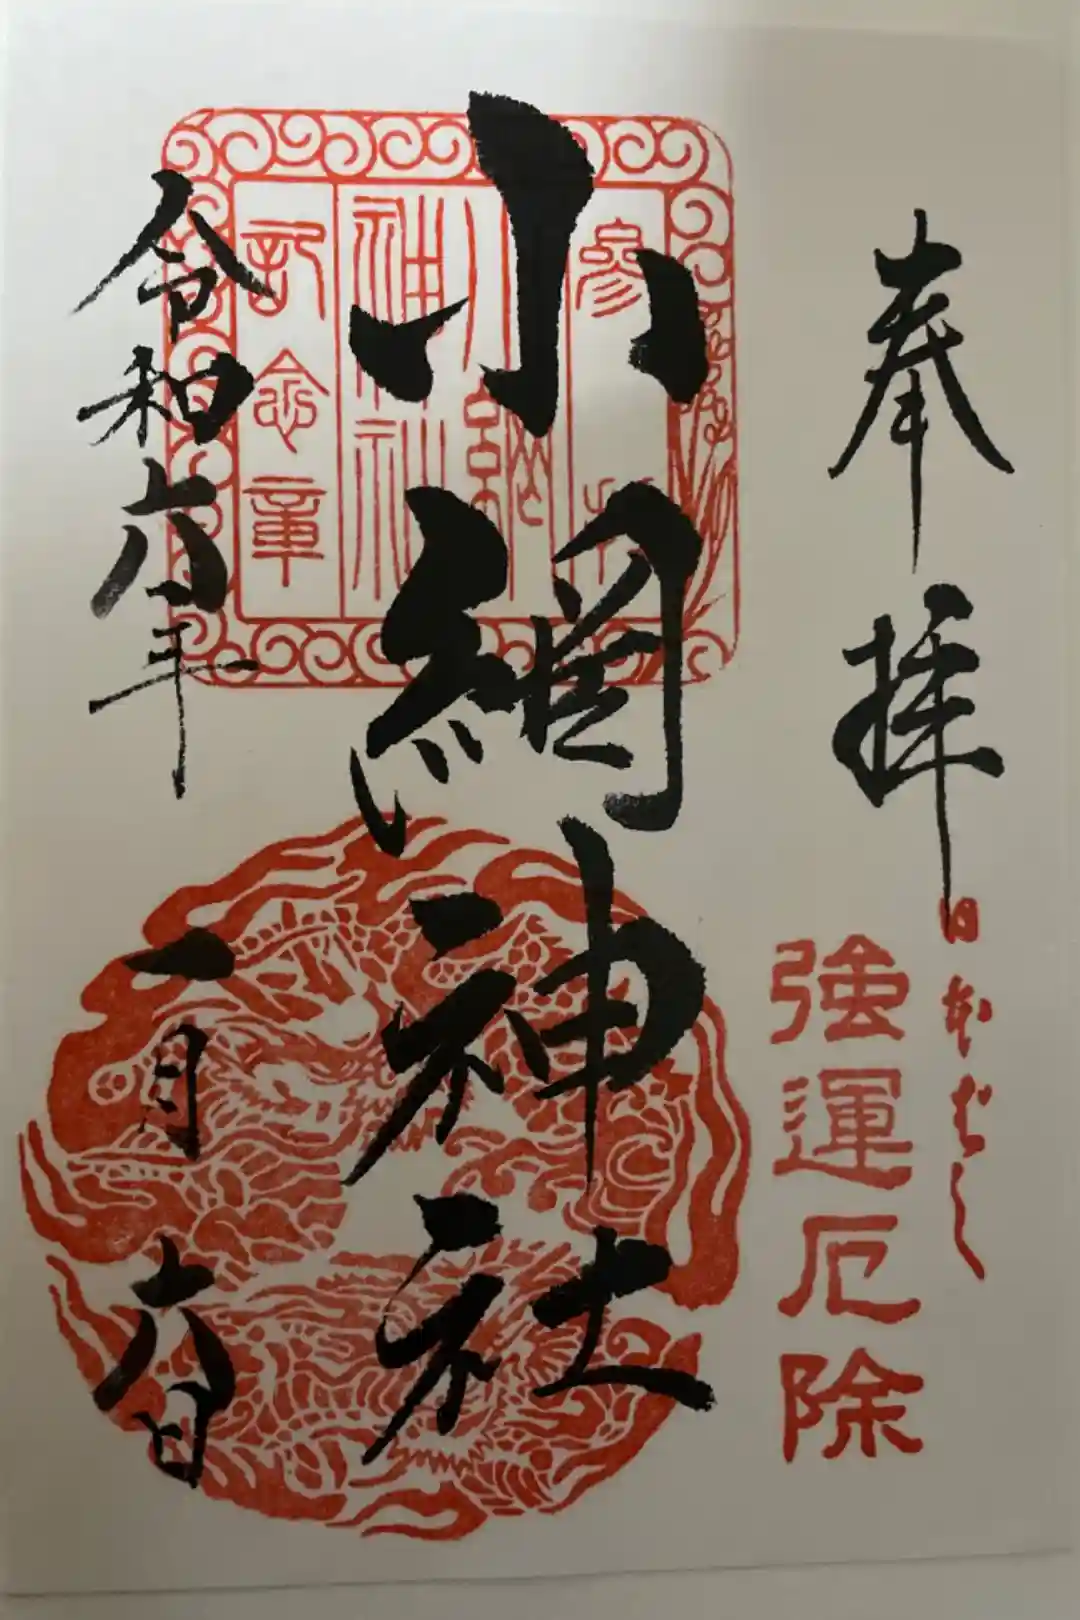 奉拝
日本ばし
強運厄除
小網神社
参拝
小網
神社
記念章
令和六年
一月六日